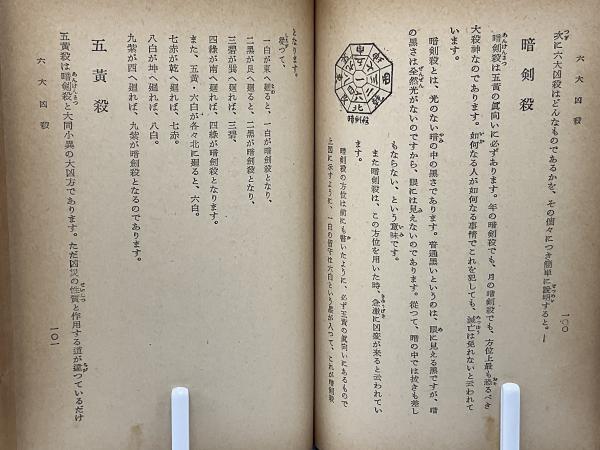 六大凶殺
一〇〇
次に六大凶殺はどんなものであるかを、その個々につき簡単に説明すると。ー
暗剣殺
暗剣殺は五黄の真向いに必ずあります。年の暗剣殺でも、月の暗剣殺でも、方位上最も恐るべき
大殺神なのであります。如何なる人が如何なる事情でこれを犯しても、滅亡は免れないと云われて
います。
暗剣殺とは、光のない暗の中の黒さであります。普通黒いというのは、眼に見える黒ですが、暗
の黒さは全然光がないのですから、眼には見えないのであります。従つて、暗の中では抜きも差し
もならない、という意味です。
また暗剣殺は、この方位を用いた時、急激に凶変が来ると云われてい
ます。
暗剣殺の方位は前にも書いたように、必ず五黄の真向いにあるもので
上図に示すように、一白の年には六白という星が入つて、これが暗剣殺
暗剣殺
となります。
従つて、
一白が東へ廻ると、一白が暗剣殺となり、
二黒が艮へ廻ると、二黒が暗剣殺となり、
三碧が巽へ廻れば、三碧、
四緑が南へ廻れば、四緑が暗剣殺となります。
また、五黄・六白が各々北に廻ると、六白。
七赤が乾へ廻れば、七赤。
八白が坤へ廻れば、八白。
九紫が西へ廻れば、九紫が暗剣殺となるのであります。
五黄殺
五黄殺は暗剣殺と大同小異の大凶方であります。ただ凶災の性質と作用する道が違つているだけ
六大凶殺
一〇一